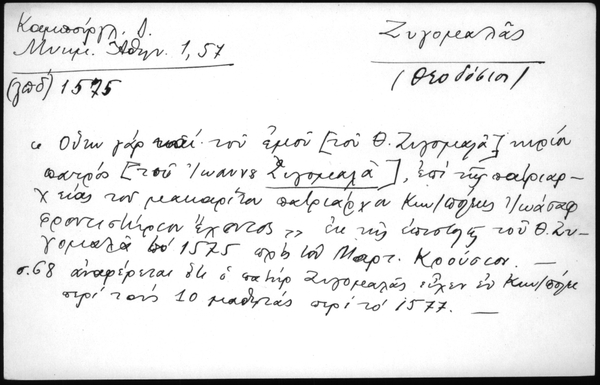 Καμπούρογλ. Δ.
Μνημ. Ἀθην. 1, 57
Ζυγομαλᾶς
(Θεοδόσιος)
1575
" Οὐκ γάρ τοῦ ἐμοῦ [τοῦ Θ. Ζυγομαλᾶ] κυρίου
πατρός [τοῦ Ἰωάννου Ζυγομαλᾶ], ἐπί τῆς πατριαρ-
χείας τοῦ μακαρίτου πατριάρχου Κων/πόλεως Ἰωάσαφ
φροντιστήριον ἔχοντος „ ἐκ τῆς ἐπιστολῆς τοῦ Θ. Ζυ-
γομαλᾶ τοῦ 1575 πρός τόν Μαρτ. Κρούσιον. —
σ. 68 ἀναφέρεται ὅτι ὁ πατήρ Ζυγομαλᾶς εἶχεν ἐν Κων/πόλει
περί τούς 10 μαθητάς περί τό 1577. —